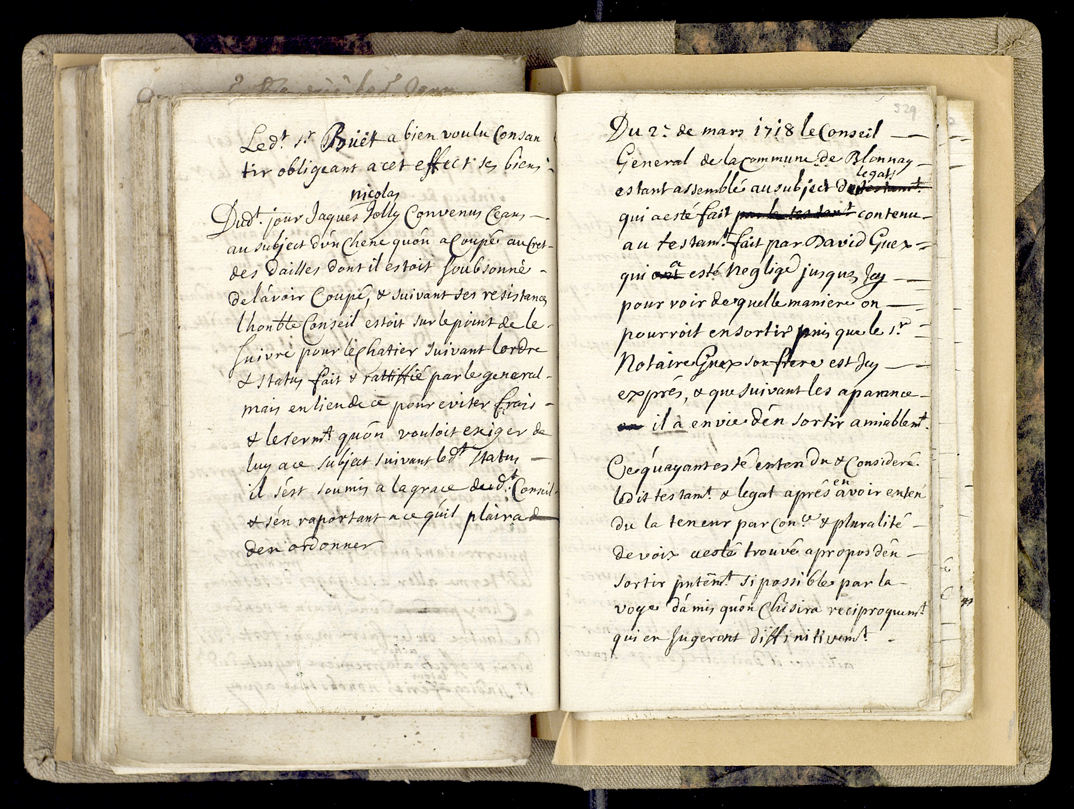 Led.t s.r Boüet a bien voulu Consan
tir obligeant a cet effect ses biens.
nicolas
Dud.t jour Jaques Jolly Convenus Ceans
au subject d'ún Chene quón a Coupé au Cret
des dailles dont il estoit soubsonné
de lávoir Coupé, & suivant ses resistances
lhonble Conseil estoit sur le point de le
suivre pour le Chatier suivant lordre
& status fait & rattiffié par le general
mais en lieu de ce pour eviter frais
& le serm.t quón vouloit exiger de
luy a ce subject suivant led.t status
il sést soumis a la grace dud.t Conseil
& sén raportant a ce quil plaira d
den ordonner
329
Du 2.e de mars 1718 le Conseil
General de la Commune de Blonnay
estant assemblé au subject du legat
qui a esté fait contenu
au testam.t fait par David Guex
qui esté Negligé jusques Jcy
pour voir de quelle maniere on
pourroit en sortir puis que le s.r
Notaire Guex son frere est Jcy
exprés, & que suivant les aparance
il à envie dén sortir amiablem.t
Ce quayant esté entendu & Consideré
ledit testam.t & legat aprés en avoir enten
du la teneur par Con.ce & pluralité
de voix a esté trouvé apropos dén
sortir pntem.t si possible par la
voye dámis quón Chisira reciproquem.t
qui en Jugeront diffinitivem.t